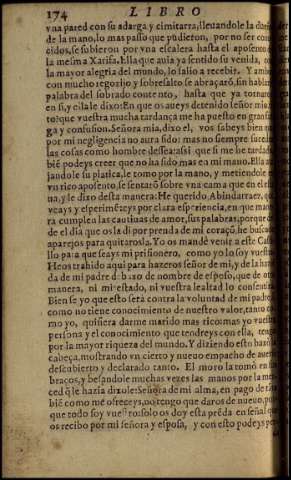 174 LIBRO
vna pared con su adarga y cimitarra, lleuandole la dueña
de la mano, lo mas passo que pudieron, por no ser cono
cidos, se subieron por vna escalera hasta el aposento de
la mesma Xarifa. Ella que auia ya sentido su venida, con
la mayor alegria del mundo, lo salio a recebir. Y ambos
con mucho regozijo y sobresalto se abraçarō, sin hablar
palabra del sobrado contento, hasta que ya tornaron
en si, y ella le dixo: En que os aueys detenido señor mio
to? que vuestra mucha tardança me ha puesto en gran
ga y confusion. Señora mia, dixo el, vos sabeys bien
por mi negligencia no aura sido: mas no siempre suceden
las cosas como hombre dessea: assi que si me he tardado
biē podeys creer que no ha sido mas en mi mano. Ella
jandole su platica, le tomo por la mano, y metiendole
vn rico aposento, se sentarō sobre vna cama que en el
ua, y le dixo desta manera: He querido, Abindarraez, que
veays y esperimēteys por clara esperiencia, en que
ra cumplen las cautiuas de amor, sus palabras, porque
de el dia que os la di por prenda de mi coraçō, he buscado
aparejos para quitarosla. Yo os mandè venir a este Casti
llo para que seays mi prisionero, como yo lo soy vuestra
Heos trahido aqui para hazeros señor de mi, y de la hazien
da de mi padre debaxo de nombre de esposo, que de otra
manera, ni mi estado, ni vuestra lealtad lo consentira
Bien se yo que esto serà contra la voluntad de mi padre,
como no tiene conocimiento de nuestro valor, tanto co
mo yo, quisiera darme marido mas rico: mas yo vuestra
persona y el conocimiento que tendreys con ella, tengo
por la mayor riqueza del mundo. Y diziendo esto baxò la
cabeça, mostrando vn cierto y nueuo empacho de auerse
descubierto y declarado tanto. El moro la tomò en sus
braços, y besandole muchas vezes las manos por la mer
ced q̄ le hazia dixole: Señora de mi alma, en pago de
biē como me ofreceys, no tengo que daros de nueuo, porq̄
que todo soy vuestro: solo os doy esta prēda en señal que
os recibo por mi señora y esposa, y con esto podeys